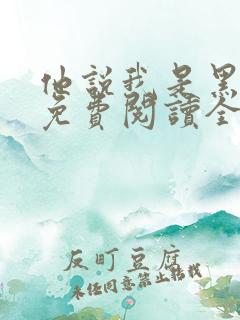 他說我是黑
免費閱讀全
反町豆腐
未經同意禁止轉載